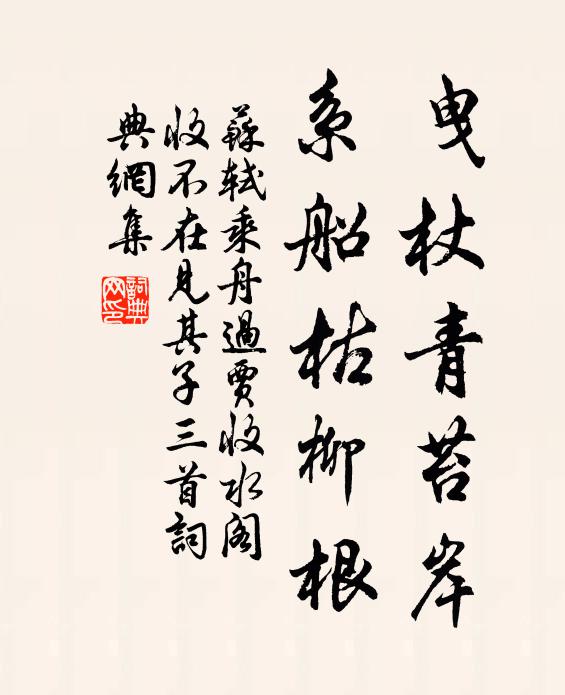 曳杖青苔岸
系船枯柳根
蘇軾乘舟過賈收水閣
收不在見其子三首詞
典網集
詞典
网印